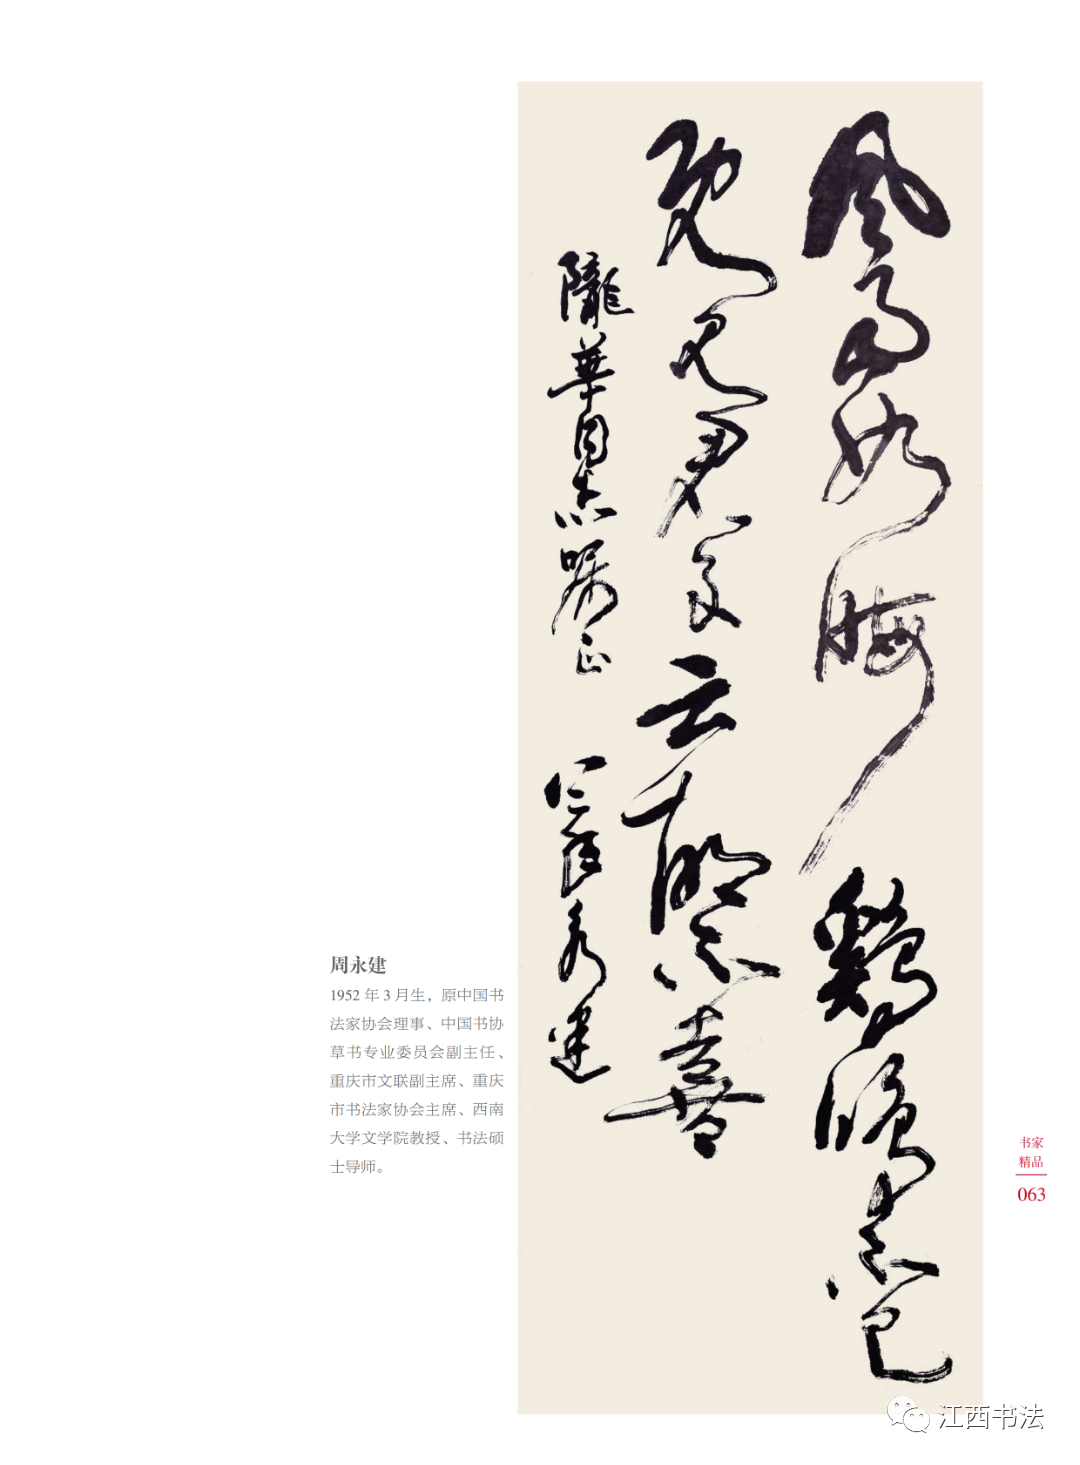 風雨如晦鷄鳴不已
既見君子云胡不喜
隴華同志嘱正
永建
周永建
1952 年 3 月生，原中国书
法家协会理事、中国书协
草书专业委员会副主任、
重庆市文联副主席、重庆
市书法家协会主席、西南
大学文学院教授、书法硕
士导师。
书家
精品
063
江西书法